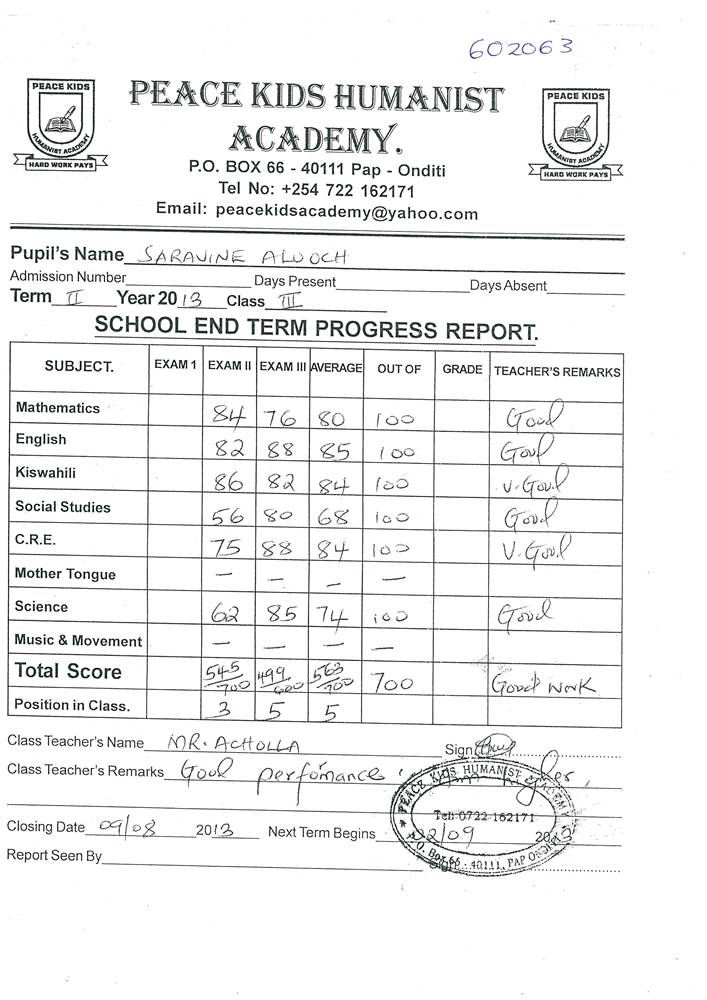 602063
PEACE KIDS
HUMANIST ACADEMY
HARD WORK PAYS
PEACE KIDS HUMANIST
ACADEMY.
PEACE KIDS
HUMANIST ACADEMY
HARD WORK PAYS
P.O. BOX 66 - 40111 Pap - Onditi
Tel No: +254 722 162171
Email: peacekidsacademy@yahoo.com
Pupil's Name SARAVINE ALUOCH
Admission Number Days Present Days Absent
Term II Year 2013 Class III
SCHOOL END TERM PROGRESS REPORT.
SUBJECT. EXAM 1 EXAM II EXAM III AVERAGE OUT OF GRADE TEACHER'S REMARKS
Mathematics 84 76 80 100 Good
English 82 88 85 100 Good
Kiswahili 86 82 84 100 V. Good
Social Studies 56 80 68 100 Good
C.R.E. 75 88 84 100 V. Good
Mother Tongue — — — —
Science 62 85 74 100 Good
Music & Movement — — — —
Total Score 545/700 499/600 563/700 700 Good Work
Position in Class. 3 5 5
Class Teacher's Name MR. ACHOLLA Sign
Class Teacher's Remarks Good perfomance
Closing Date 09/08 2013 Next Term Begins 02/09 2013
Report Seen By Sign
PEACE KIDS HUMANIST ACADEMY
Tel: 0722 162171
P.O. Box 66 - 40111, PAP ONDITI